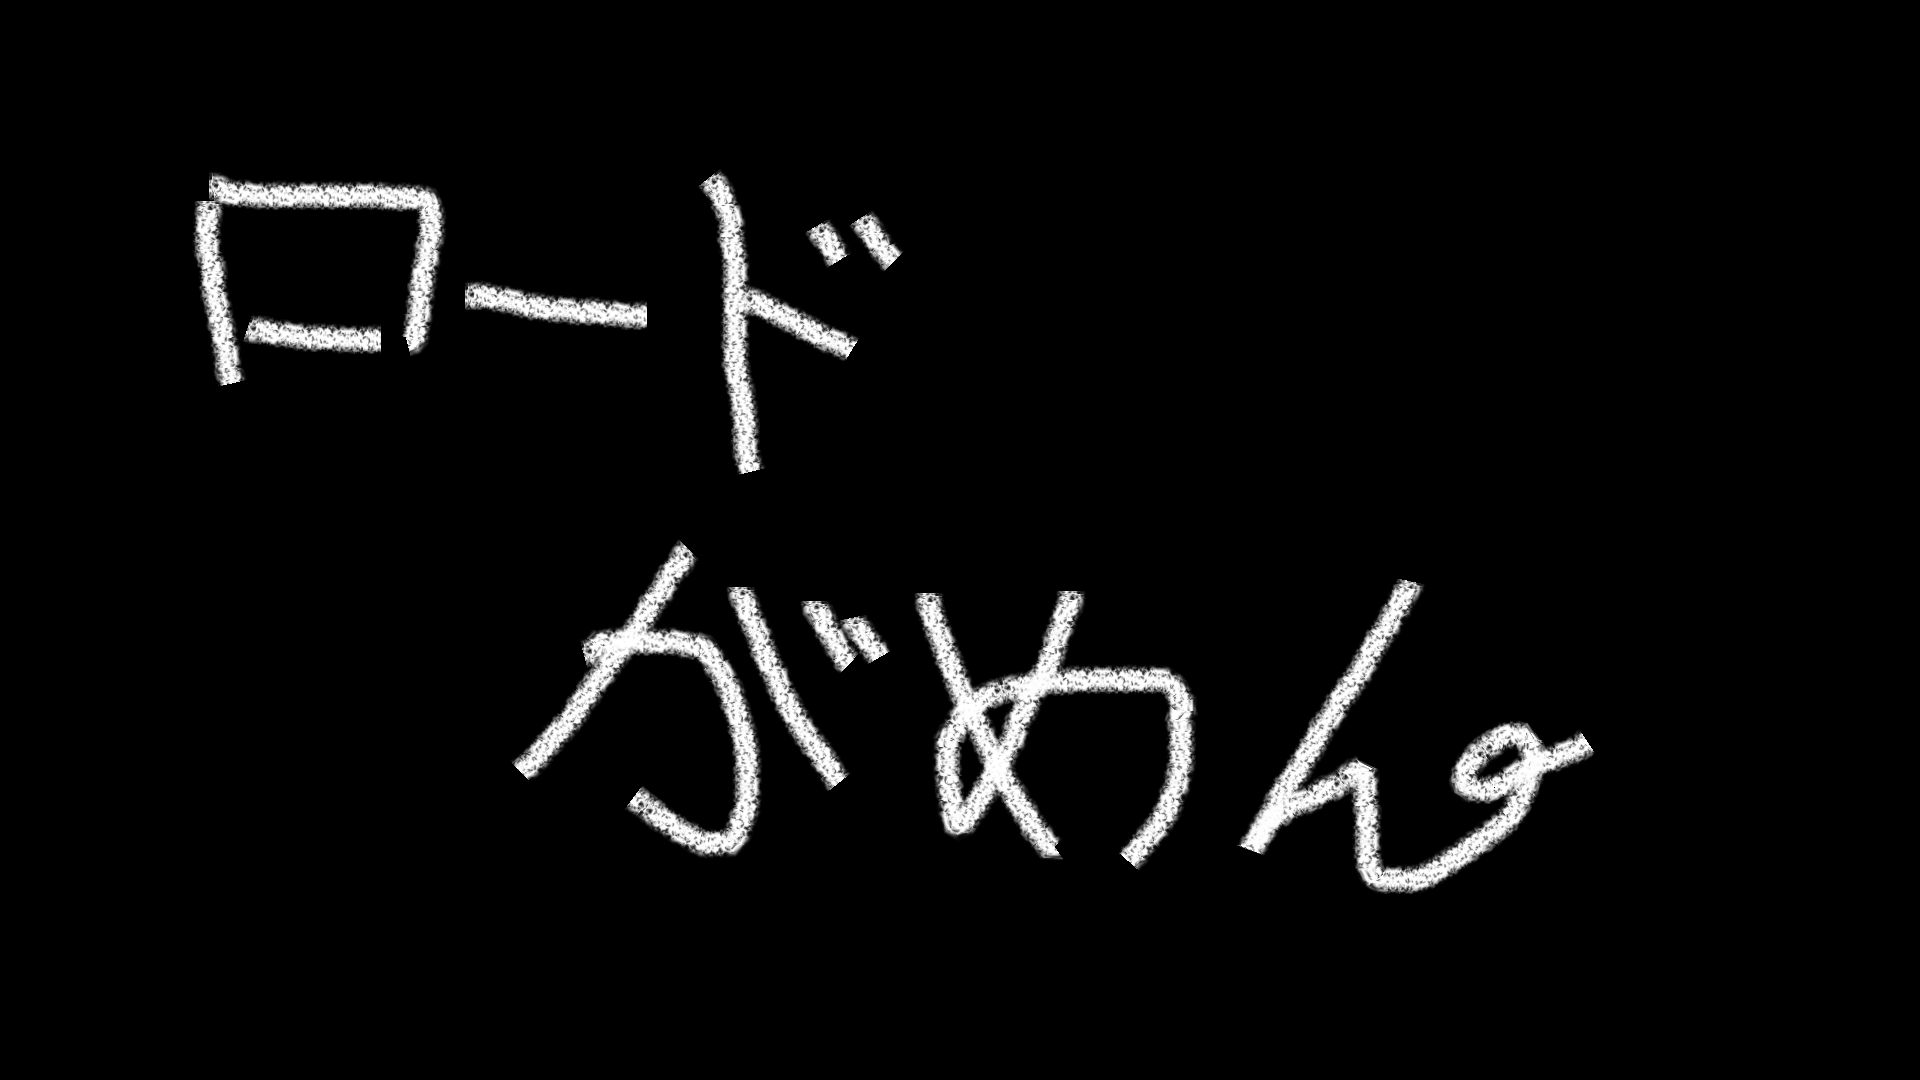 ロード
がめん